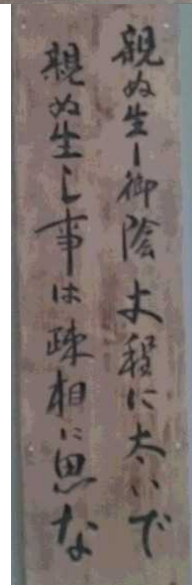 親ぬ生し御陰 丈程に太いで
親ぬ生し事は疎相に思な